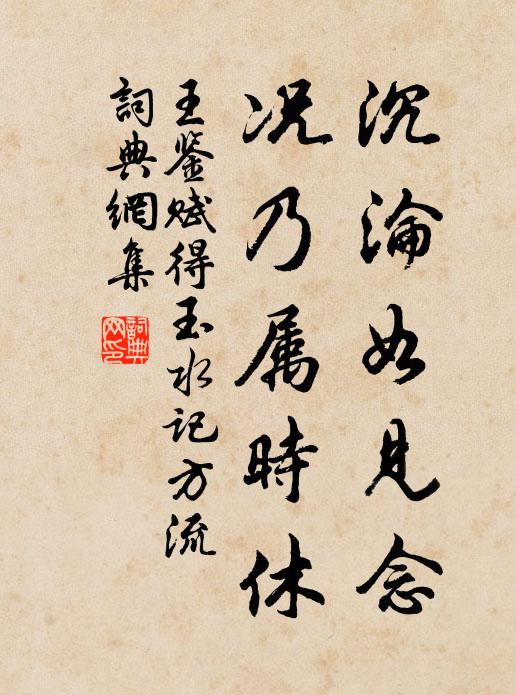 沉淪如見念
况乃属時休
王鉴赋得玉水记方流
詞典網集
詞典
网印